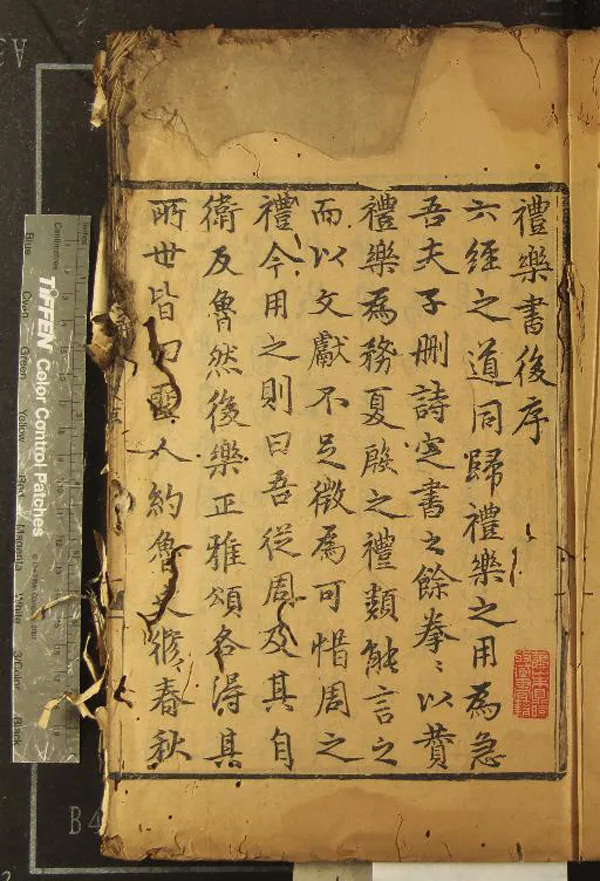 禮樂書後序
六經之道同歸禮樂之用為急
吾夫子刪詩定書之餘拳〻以賛
禮樂為務夏殷之禮類能言之
而以文獻不足徵為可惜周之
禮今用之則曰吾從周及其自
衛反魯然後樂正雅頌各得其
所世皆曰聖人約魯史修春秋
TIFFEN Color Control Patches
Centimetres
Inches
Blue Cyan Green Yellow Red Magenta White 3/Color Black
A3
B4